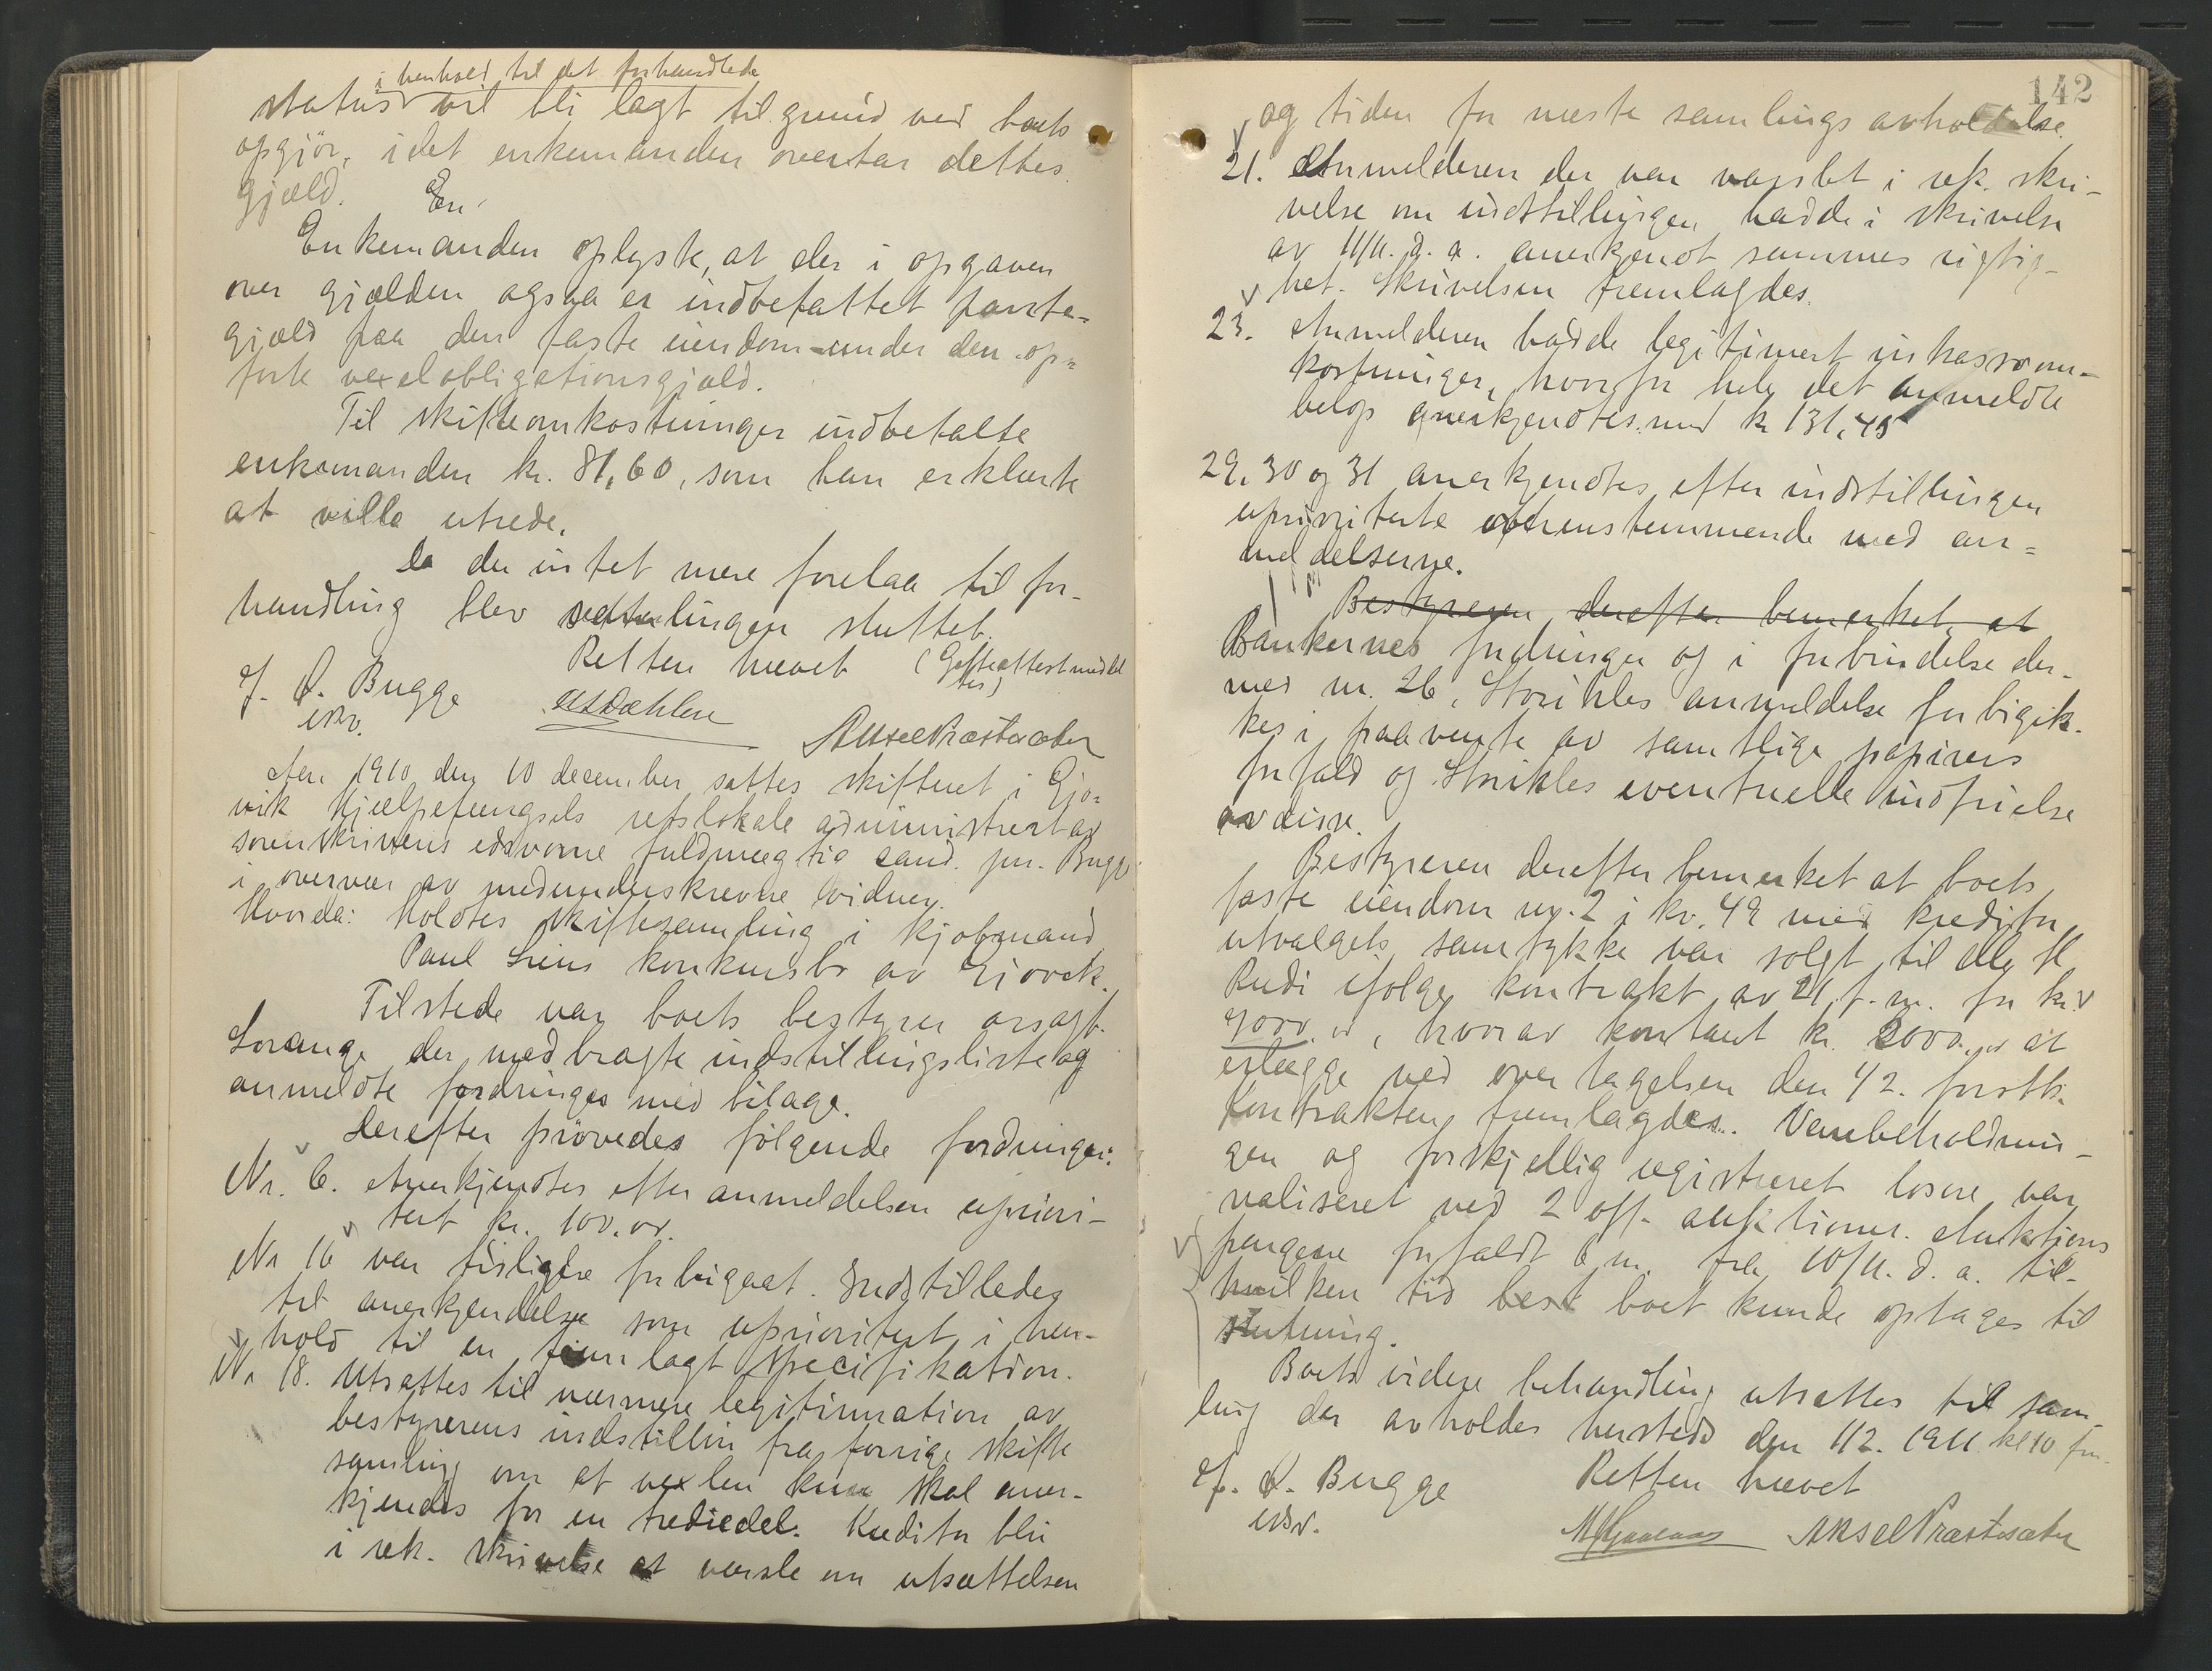 i henhold til det forhandlede
status vil bli lagt til grund ved boets
opgjör, idet enkemanden overtar dettes
gjæld. En
Enkemanden oplyste, at der i opgaven
over gjælden ogsaa er indbefattet pante-
gjæld paa den faste eiendom under den op-
førte vexelobligationsgjæld.
Til skifteomkostninger indbetalte
enkemanden kr. 81,60, som han erklærte
at ville utrede.
Da der intet mere forelaa til for-
handling blev samlingen sluttet.
Retten hævet (Skifteattest meddel
tes)
J. Q. Bugge
edsv.
Aksel Præstesæter
Aar 1910 den 10 december sattes skifteret i Gjø-
vik Hjælpefængsels retslokale administrert av
sorenskriverens edsvorne fuldmægtig cand. jur. Bugge
i overvær av medunderskrevne vidner.
Hvorda: Holdtes skiftesamling i kjøbmand
Paul Liens konkursbo av Gjøvik.
Tilstede var boets bestyrer orsagf.
Lorange der medbragte indstillingsliste og
anmeldte fordringer med bilage.
Derefter prövedes følgende fordringer:
Nr. 6. Anerkjendtes efter anmeldelsen upriori-
tert kr. 100.00.
Nr 16 var tidligere forbigaat. Indstilledes
til anerkjendelse som uprioritert i hen-
hold til en fremlagt specifikation.
Nr 18. Utsattes til nærmere legitimation av
bestyrerens indstillin fra forrige skifte
samling om at vexlen kun skal aner-
kjendes for en trediedel. Kreditor blir
i rek. skrivelse at varsle om utsættelsen
142
og tiden for næste samlings avholdelse.
21. Anmelderen der var varslet i rek. skri-
velse om indstillingen hadde i skrivelse
av 11/11. d. a. anerkjendt sammes rigtig-
het. Skrivelsen fremlagdes.
23. Anmelderen hadde legitimert inkassoom-
kostninger, hvorfor hele det anmeldte
beløp anerkjendtes med kr 131,45
29, 30 og 31 anerkjendtes efter indstillingen
uprioriterte overensstemmende med an-
meldelserne.
Bestyreren derefter bemerket at
Bankernes fordringer og i forbindelse der-
med nr. 26, Storikles anmeldelse forbigik-
kes i paavente av samtlige papirers
forfald og Storikles eventuelle indfrielse
av disse.
Bestyreren derefter bemerket at boets
faste eiendom nr. 2 i kv. 49 med kreditor
utvalgets samtykke var solgt til
Rudi ifølge kontrakt av 21. f. m. for kr.
9000.00, hvorav kontant kr. 2000.00 at
erlægge ved overtagelsen den 1/2. førstk.
Kontrakten fremlagdes. Varebeholdnin-
gen og forskjellig registreret løsøre var
realiseret ved 2 off. auktioner. Auktions
pengene forfaldt 6 m. fra 10/11. d. a. til
hvilken tid best boet kunde optages til
slutning.
Boets videre behandling utsattes til sam-
ling der avholdes hersteds den 11/2. 1911 kl 10 fm.
Retten hævet
J. Q. Bugge
edsv.
Aksel Præstesæter